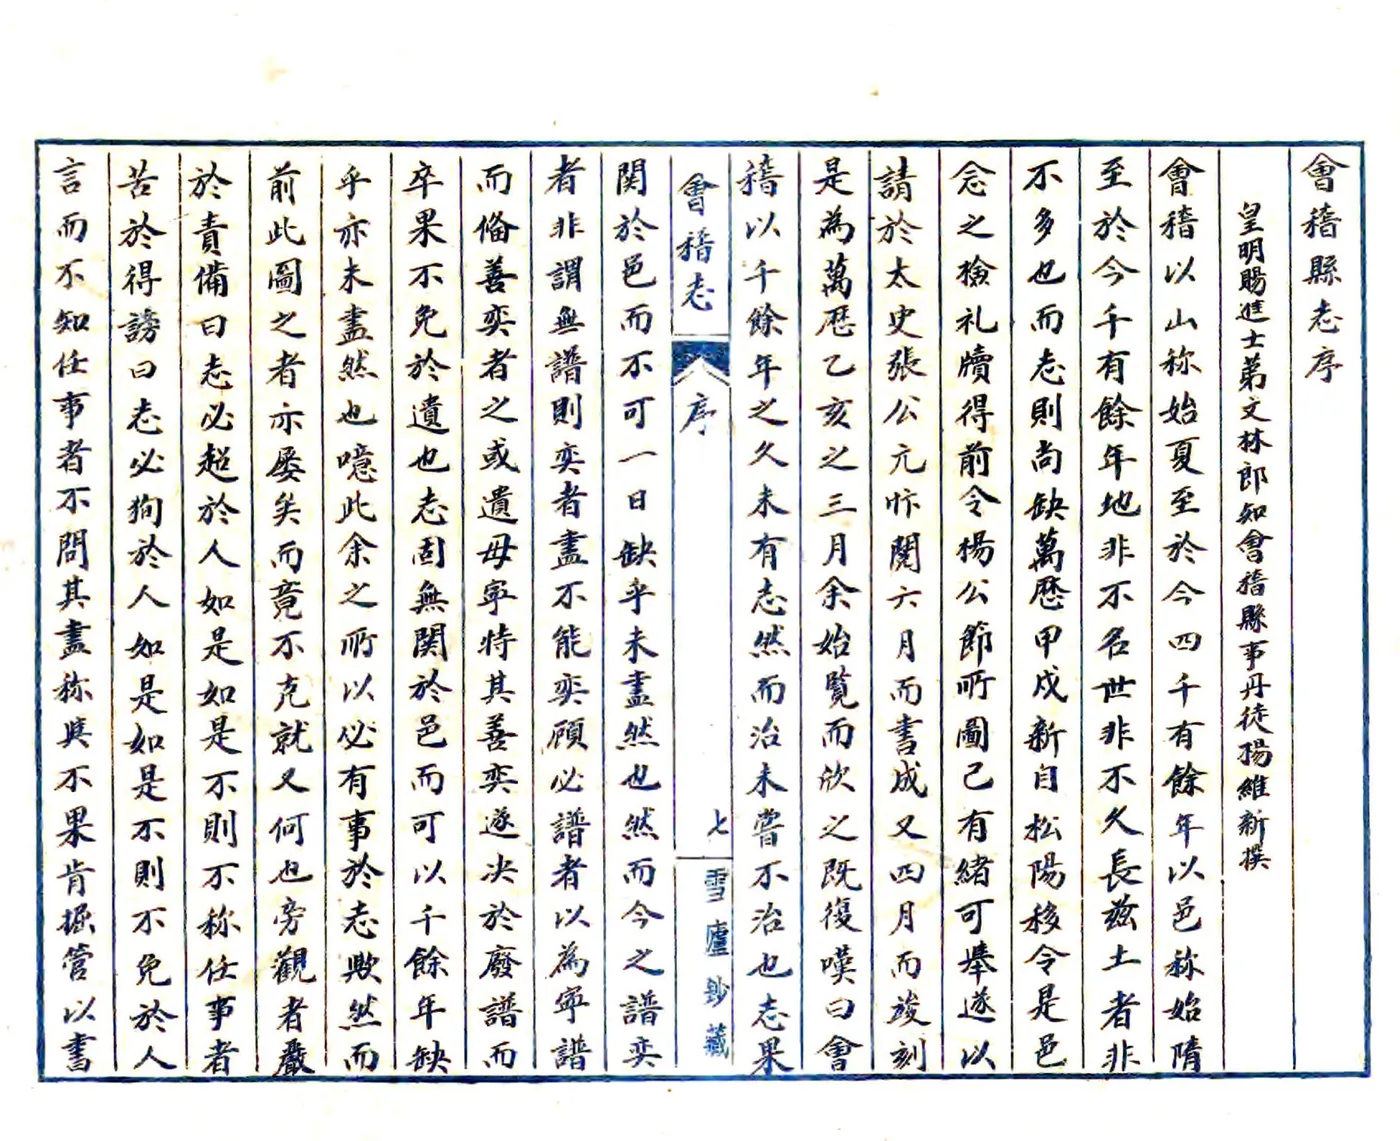 會稽縣志序
皇明賜進士第文林郎知會稽縣事丹徒楊維新撰
會稽以山称始夏至於今四千有餘年以邑称始隋
至於今千有餘年地非不名世非不久長兹土者非
不多也而志則尚缺萬歷甲戍新自松陽移令是邑
念之檢礼牘得前令楊公節所圖己有緒可舉遂以
請於太史張公元忭閱六月而書成又四月而竣刻
是為萬厯乙亥之三月余始覽而欣之既復嘆曰會
稽以千餘年之久未有志然而治未嘗不治也志果
會稽志
序
七
雪廬鈔藏
関於邑而不可一日缺乎未盡然也然而今之譜奕
者非謂無譜則奕者盡不能奕頋必譜者以為寧譜
而俻善奕者之或遺毋寧特其善奕遂决於廢譜而
卒果不免於遺也志固無関於邑而可以千餘年缺
乎亦未盡然也噫此余之所以必有事於志歟然而
前此圖之者亦屢矣而竟不克就又何也旁觀者嚴
於責備曰志必超於人如是如是不則不称任事者
苦於得謗曰志必狥於人如是如是不則不免於人
言而不知任事者不問其盡称與不果肯搦管以書